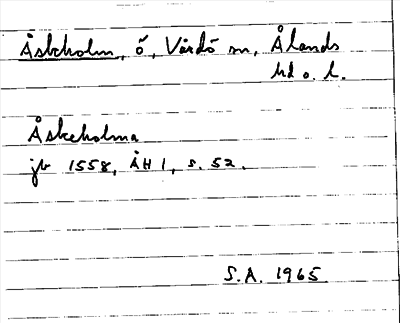 Åskholm, ö, Vårdö sn, Ålands
hd o. l.
Åskeholma
jb 1558, ÅH 1, s. 52.
S.A. 1965